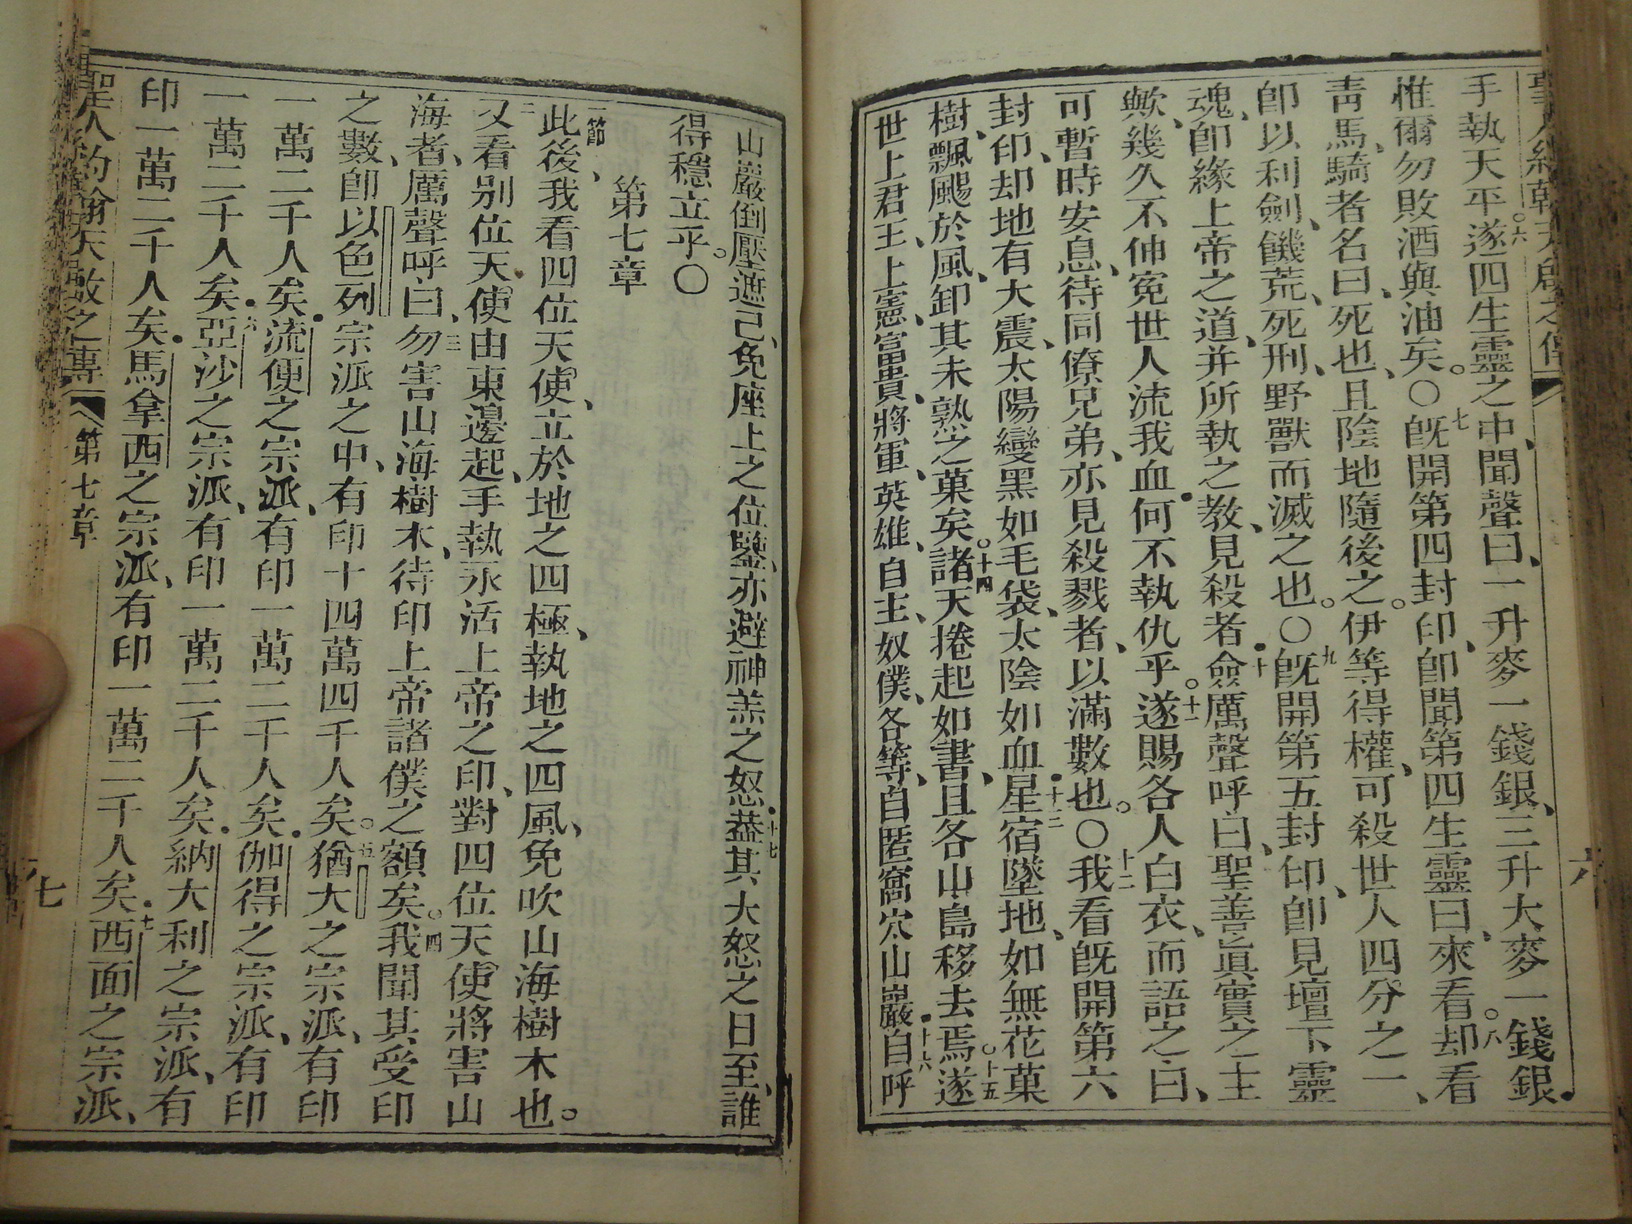 手執天平。六遂四生靈之中、聞聲曰、一升麥一錢銀、三升大麥一錢銀.
惟爾勿敗酒與油矣。〇七旣開第四封印、卽聞第四生靈曰、來看。八却看
靑馬、騎者名曰、死也、且陰地隨後之。伊等得權、可殺世人四分之一、
卽以利劍、饑荒、死刑、野獸而滅之也。〇九旣開第五封印、卽見壇下靈
魂、卽緣上帝之道、并所執之教、見殺者.十僉厲聲呼曰、聖善眞實之主
歟、幾久不伸冤世人流我血.何不執仇乎。十一遂賜各人白衣、而語之曰、
可暫時安息、待同僚兄弟、亦見殺戮者、以滿數也。〇十二我看旣開第六
封印、却地有大震、太陽變黑如毛袋、太陰如血.十三星宿墜地、如無花菓
樹、飄颺於風、卸其未熟之菓矣。十四諸天捲起如書、且各山島移去焉。十五遂
世上君王、上憲、富貴、將軍、英雄、自主、奴僕、各等、自匿窩穴山巖.十六自呼
山巖倒壓遮己、免座上之位鑒、亦避神羔之怒.十七蓋其大怒之日至、誰
得穩立乎。〇
第七章
一節此後、我看四位天使、立於地之四極、執地之四風、免吹山海樹木也。
二又看别位天使由東邊起、手執永活上帝之印、對四位天使將害山
海者、厲聲呼曰、三勿害山海樹木、待印上帝諸僕之額矣。四我聞其受印
之數、卽以色列宗派之中、有印十四萬四千人矣。五猶大之宗派、有印
一萬二千人矣.流便之宗派、有印一萬二千人矣.伽得之宗派、有印
一萬二千人矣.六亞沙之宗派、有印一萬二千人矣.納大利之宗派、有
印一萬二千人矣.馬拿西之宗派、有印一萬二千人矣.七西面之宗派、
聖人約翰天啟之傳
第七章
七